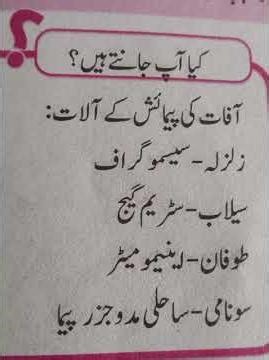 کیا آپ جانتے ہیں؟
آفات کی پیمائش کے آلات:
زلزلہ-سیسموگراف
سیلاب-سٹریم گیج
طوفان-اینیمومیٹر
سونامی-ساحلی مدوجزر پیما